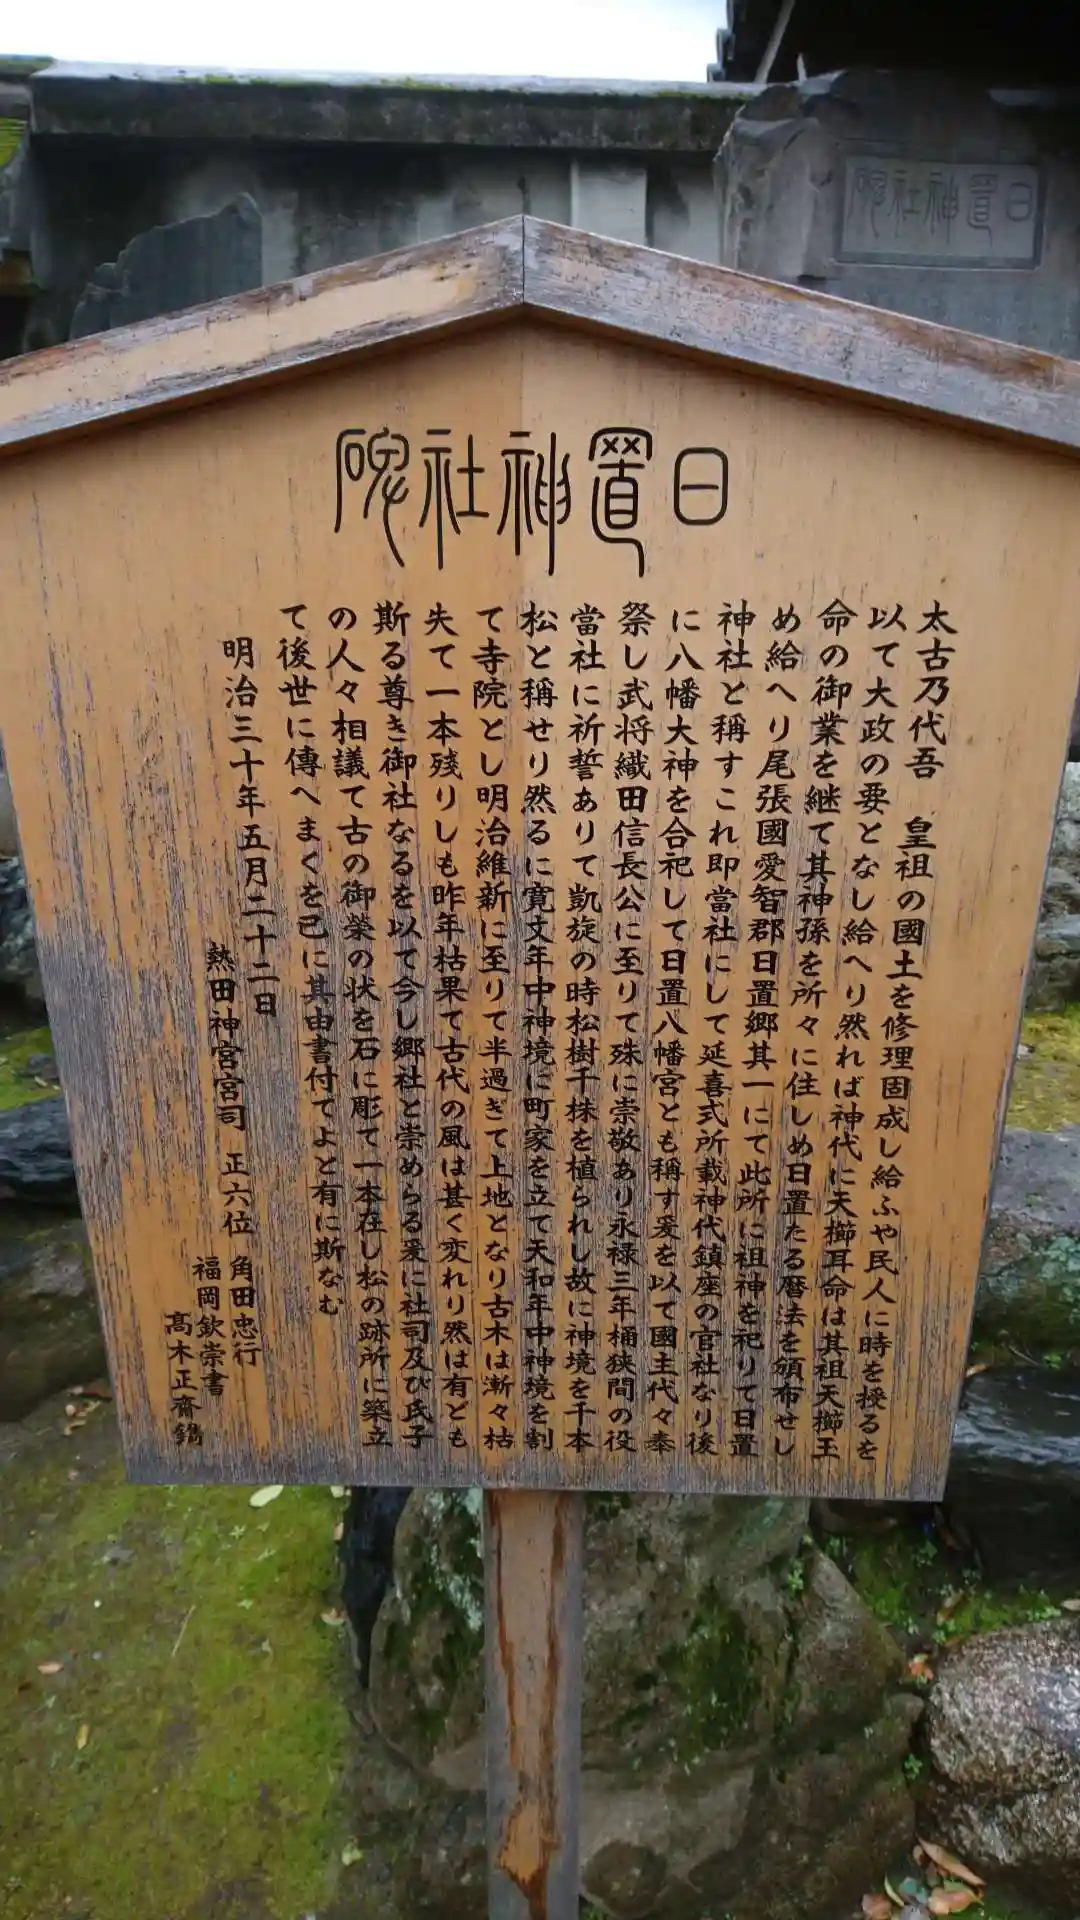 日置神社碑
日置神社碑
太古乃代吾　皇祖の國土を修理固成し給ふや民人に時を授るを
以て大政の要となし給へり然れば神代に天櫛耳命は其祖天櫛玉
命の御業を継て其神孫を所々に住しめ日置たる暦法を頒布せし
め給へり尾張國愛智郡日置郷其一にて此所に祖神を祀りて日置
神社と稱すこれ即當社にして延喜式所載神代鎮座の官社なり後
に八幡大神を合祀して日置八幡宮とも稱す爰を以て國主代々奉
祭し武将織田信長公に至りて殊に崇敬あり永禄三年桶狭間の役
當社に祈誓ありて凱旋の時松樹千株を植られし故に神境を千本
松と稱せり然るに寛文年中神境に町家を立て天和年中神境を割
て寺院とし明治維新に至りて半過ぎて上地となり古木は漸々枯
失て一本残りしも昨年枯果て古代の風は甚く変れり然は有ども
斯る尊き御社なるを以て今し郷社と崇めらる爰に社司及び氏子
の人々相議て古の御榮の状を石に彫て一本在し松の跡所に築立
て後世に傳へまくを己に其由書付てよと有に斯なむ
明治三十年五月二十二日
熱田神宮宮司　正六位　角田忠行
福岡欽崇書
髙木正齋鐫